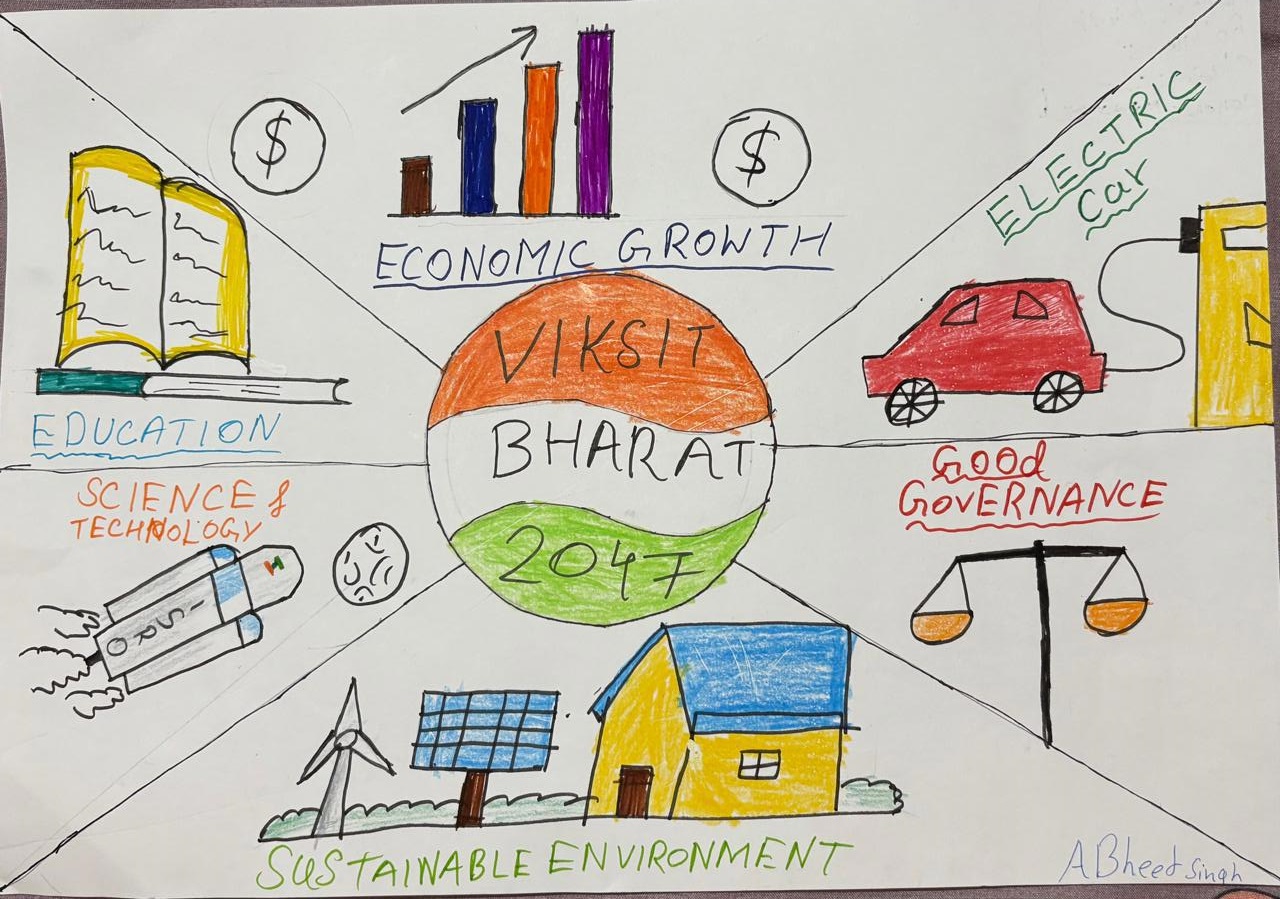 $
$
ECONOMIC GROWTH
ELECTRIC
Car
VIKSIT
BHARAT
2047
EDUCATION
GOOd
GOVERNANCE
SCIENCE &
TECHNOLOGY
ISRO
SUSTAINABLE ENVIRONMENT
ABheet Singh